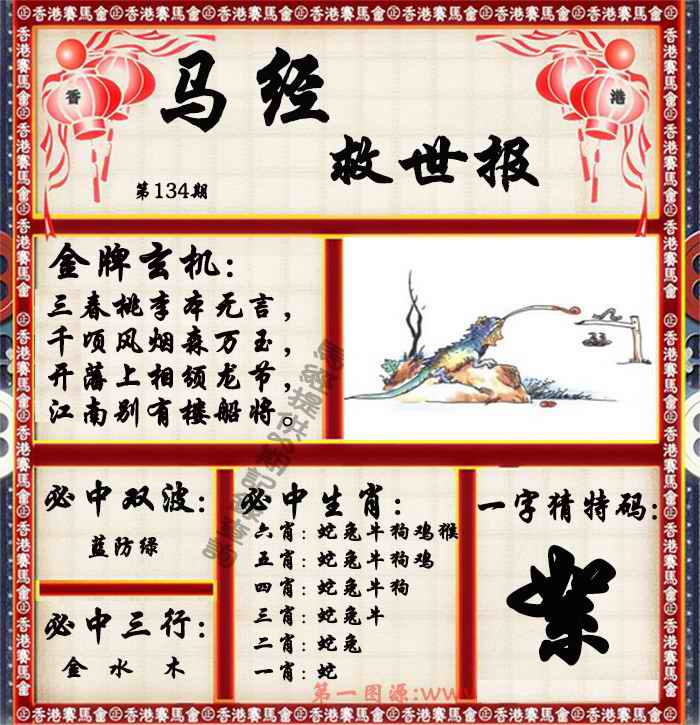 香港賽馬會
香
港
马经
救世报
第134期
金牌玄机：
三春桃李本无言，
千顷风烟森万玉，
开藩上相颁龙节，
江南别有楼船将。
必中双波：
蓝防绿
必中三行：
金 水 木
必中生肖：
六肖：蛇兔牛狗鸡猴
五肖：蛇兔牛狗鸡
四肖：蛇兔牛狗
三肖：蛇兔牛
二肖：蛇兔
一肖：蛇
一字猜特码：
第一图源:www